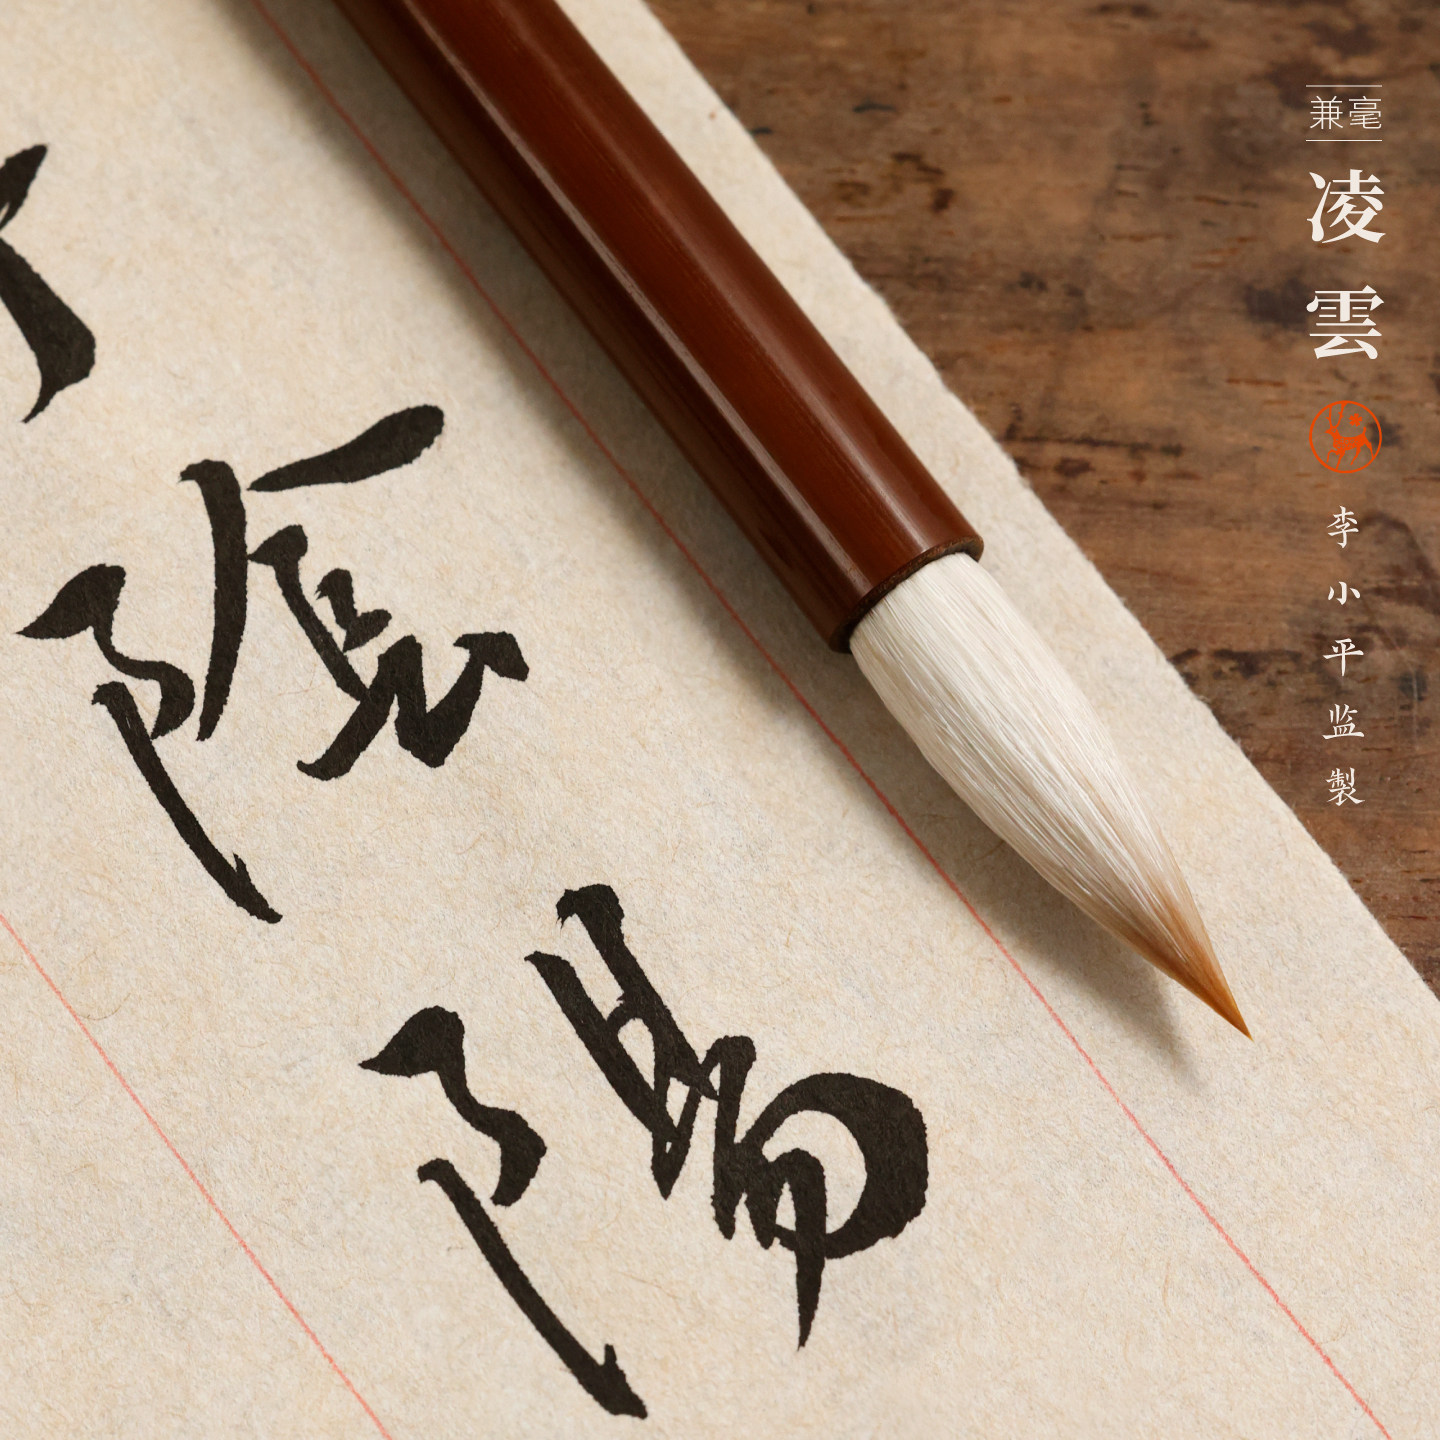 兼毫
凌雲
李小平监製
陰陽